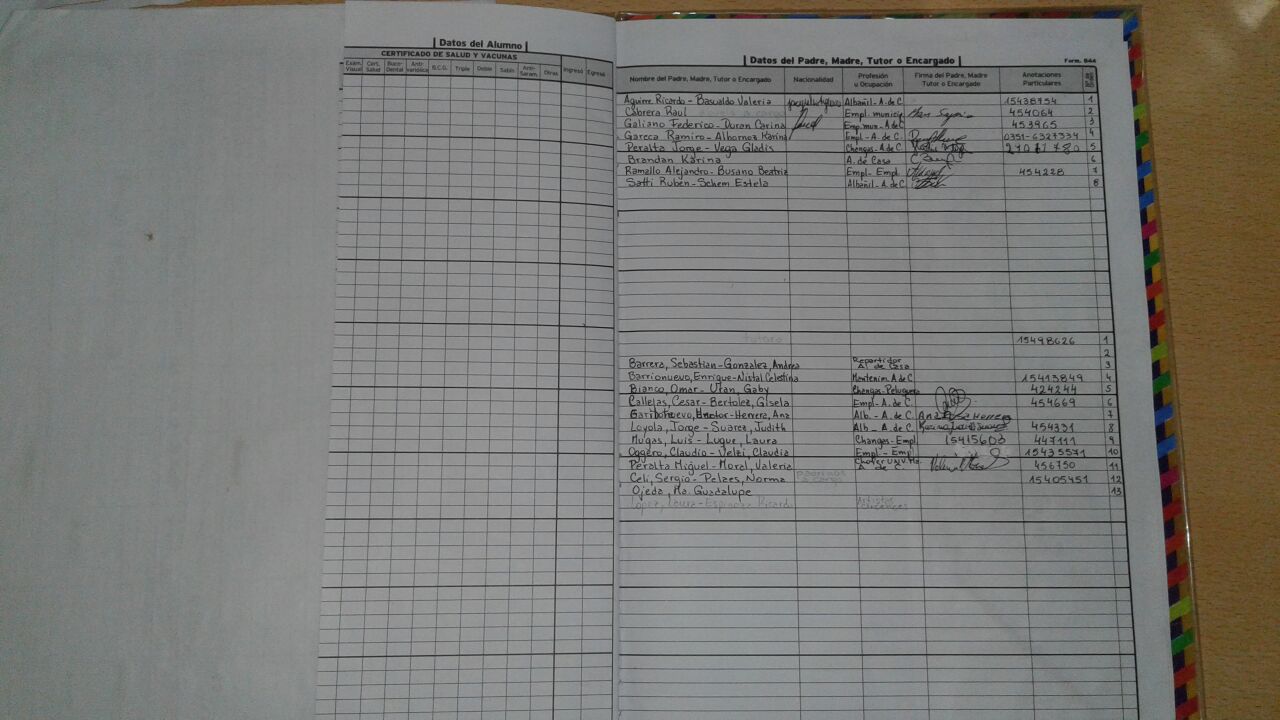 Datos del Alumno
CERTIFICADO DE SALUD Y VACUNAS
Exam. Visual Cert. Salud Buco-Dental Anti-variólica B.C.G. Triple Doble Sabin Anti-Saram. Otras Ingresó Egresó
Datos del Padre, Madre, Tutor o Encargado Form.
Nombre del Padre, Madre, Tutor o Encargado Nacionalidad Profesión u Ocupación Firma del Padre, Madre Tutor o Encargado Anotaciones Particulares
Aguirre Ricardo - Basualdo Valeria Albañil - A. de C. 15438754 1
Cabrera Raul Empl. municip 454064 2
Galiano Federico - Duran Carina Emp. mun - A. de C 453965 3
Gareca Ramiro - Albornoz Karina Empl - A. de C. 0351-6327334 4
Peralta Jorge - Vega Gladis Changas - A. de C. 5
Brandan Karina A. de Casa 6
Ramallo Alejandro - Busano Beatriz Empl - Empl 454228 7
Satti Rubén - Schem Estela Albañil - A. de C 8
15498626 1
2
Barrera, Sebastian - Gonzalez Andrea Repartidor A. de Casa 3
Barrionuevo, Enrique - Nistal Celestina Mantenim. A. de C 15413849 4
Bianco, Omar - Utan, Gaby Changas - Peluquera 424244 5
Callejas, Cesar - Bertolez, Gisela Empl - A. de C. 454669 6
Herrera, Ana Alb. - A. de C. 7
Loyola, Jorge - Suarez, Judith Alb - A. de C. 454331 8
Mugas, Luis - Luque, Laura Changas - Empl. 15415603 447111 9
Oggero, Claudio - Velzi, Claudia Empl - Empl 15435571 10
Peralta Miguel - Morel, Valeria A. de C. 456750 11
Celi, Sergio - Pelaes, Norma 15405451 12
Ojeda, Ma. Guadalupe 13